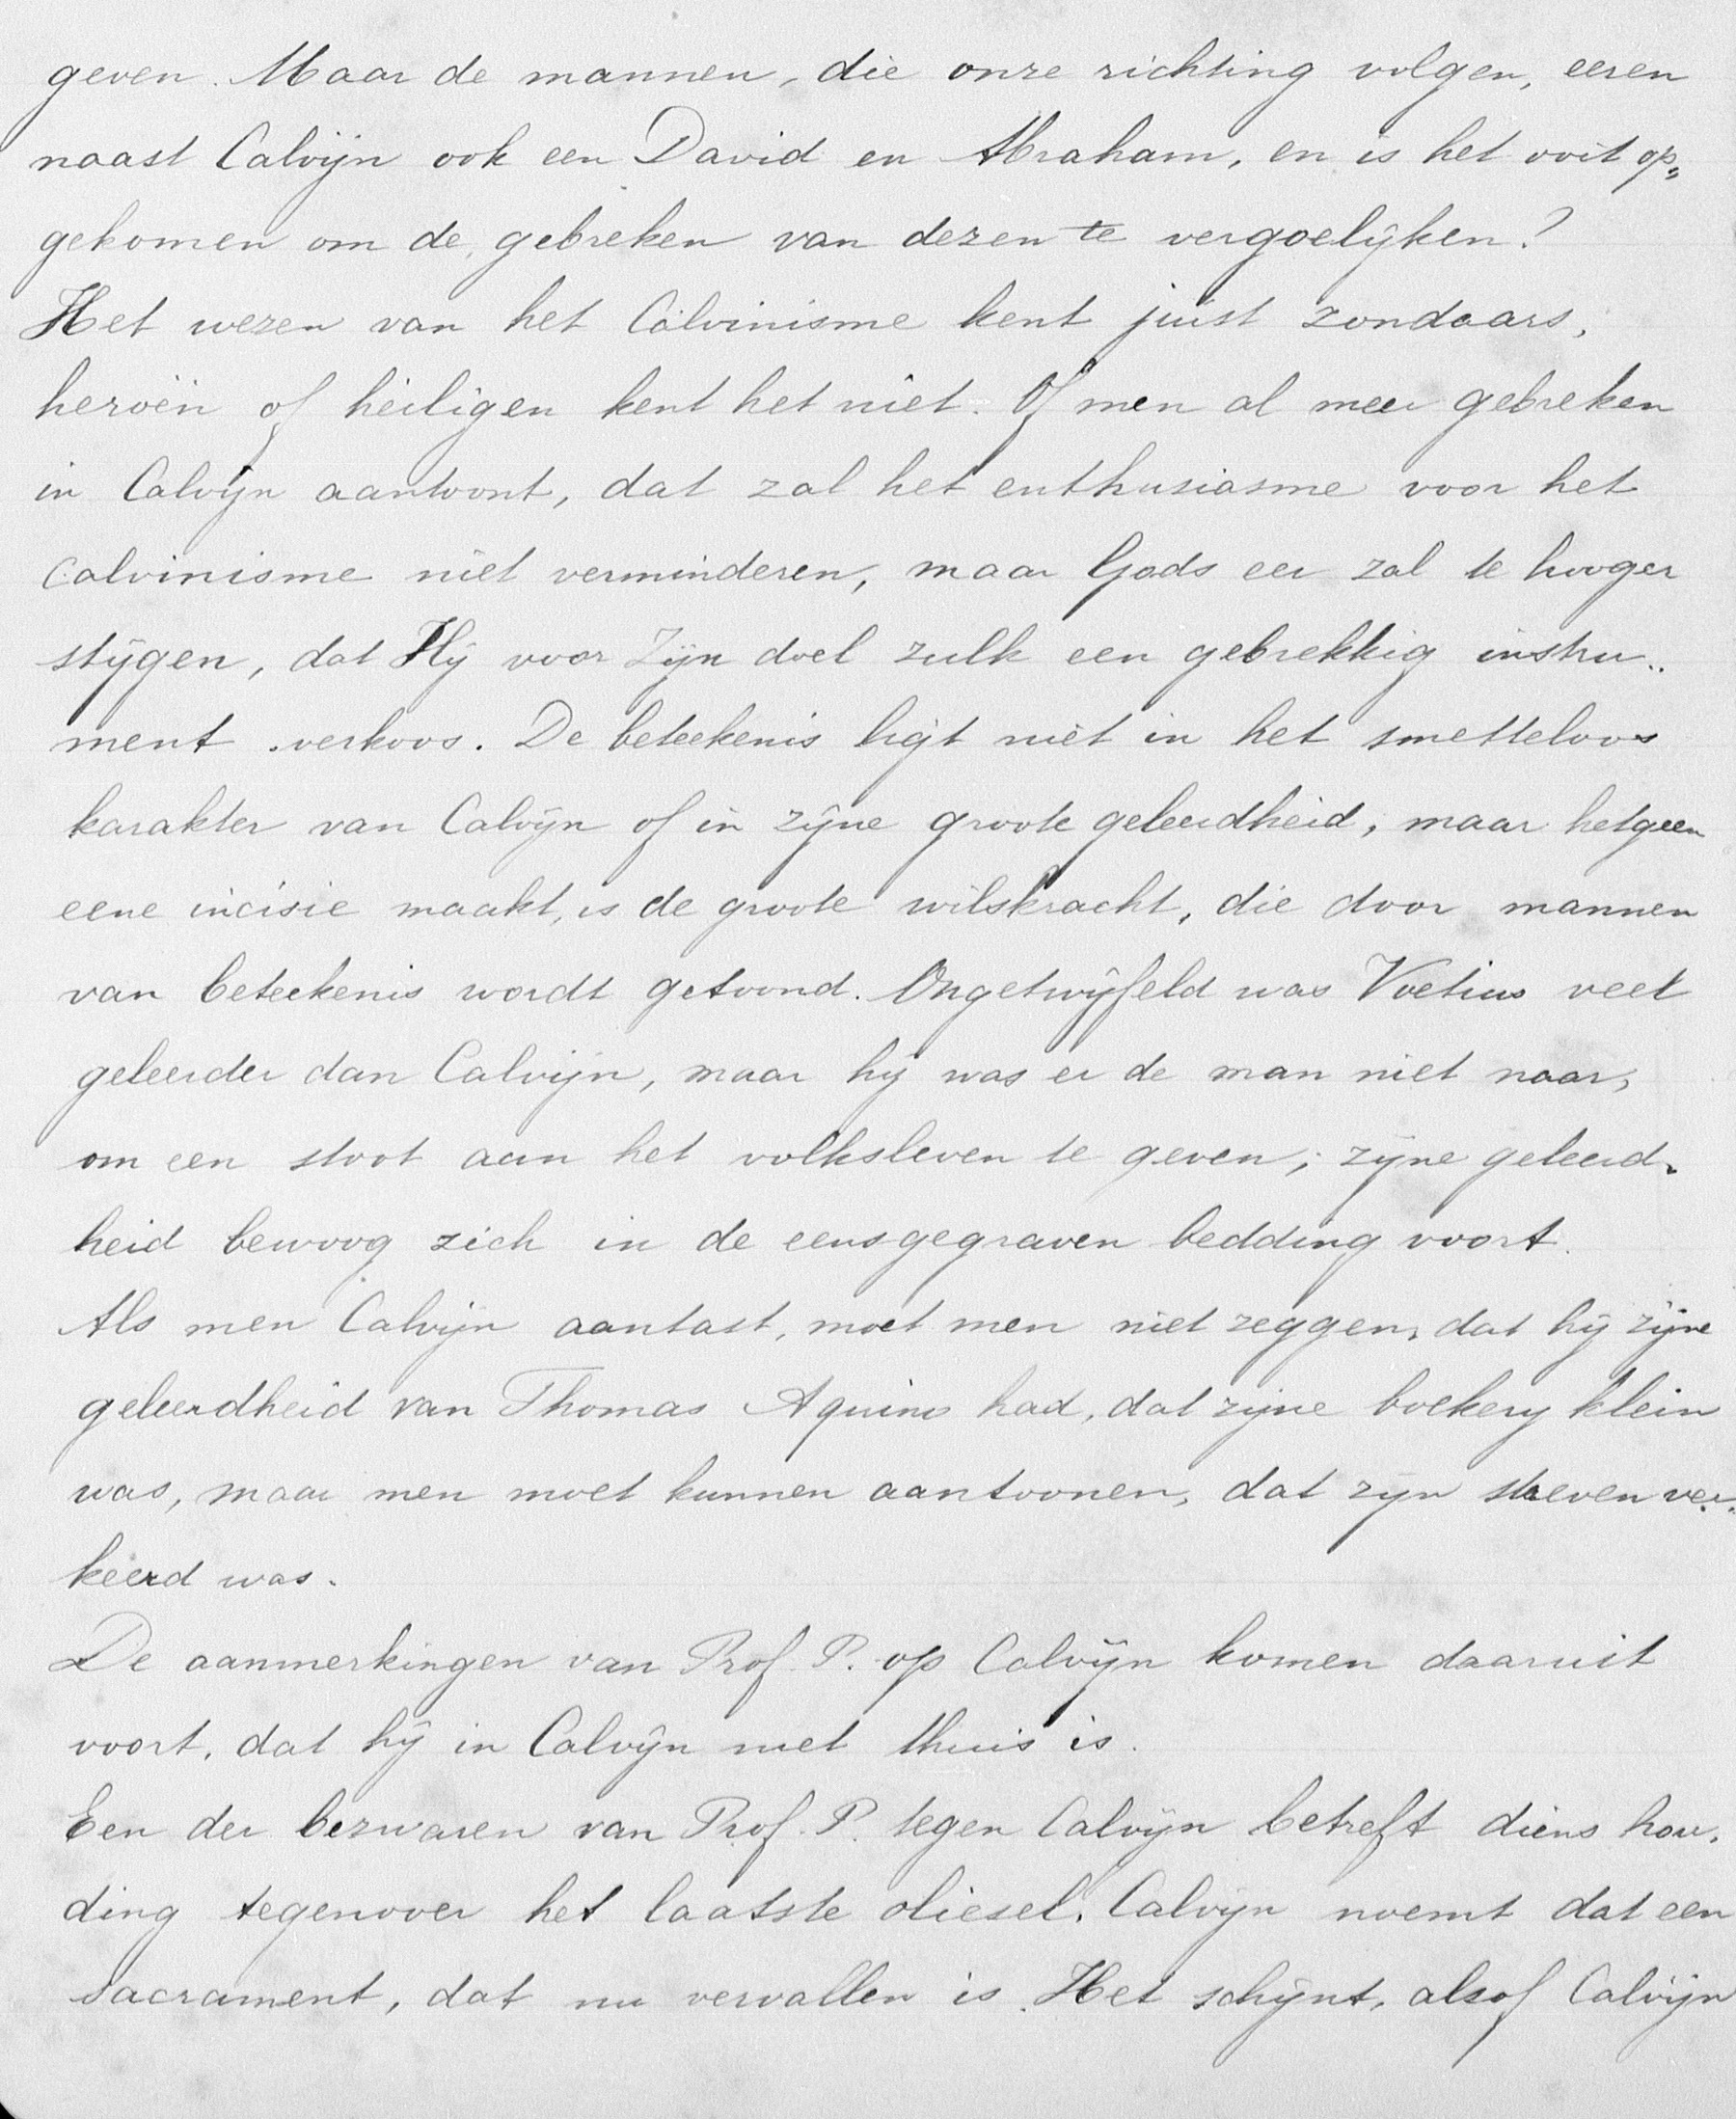 geven. Maar de mannen, die onze richting volgen, eeren
naast Calvijn ook een David en Abraham, en is het ooit op„
gekomen om de gebreken van dezen te vergoelijken?
Het wezen van het Calvinisme kent juist zondaars,
heroën of heiligen kent het niet. Of men al meer gebreken
in Calvijn aantoont, dat zal het enthusiasme voor het
Calvinisme niet verminderen, maar Gods eer zal te hooger
stijgen, dat Hij voor Zijn doel zulk een gebrekkig instru„
ment verkoos. De beteekenis ligt niet in het smetteloos
karakter van Calvijn of in zijne groote geleerdheid, maar hetgeen
eene incisie maakt, is de groote wilskracht, die door mannen
van beteekenis wordt getoond. Ongetwijfeld was Voetius veel
geleerder dan Calvijn, maar hij was er de man niet naar,
om een stoot aan het volksleven te geven; zijne geleerd„
heid bewoog zich in de eensgegraven bedding voort.
Als men Calvijn aantast, moet men niet zeggen, dat hij zijne
geleerdheid van Thomas Aquino had, dat zijne boekerij klein
was, maar men moet kunnen aantoonen, dat zijn streven ver„
keerd was.
De aanmerkingen van Prof. P. op Calvijn komen daaruit
voort, dat hij in Calvijn niet thuis is.
Een der bezwaren van Prof. P. tegen Calvijn betreft diens hou„
ding tegenover het laatste oliesel. Calvijn noemt dat een
sacrament, dat nu vervallen is. Het schijnt, alsof Calvijn